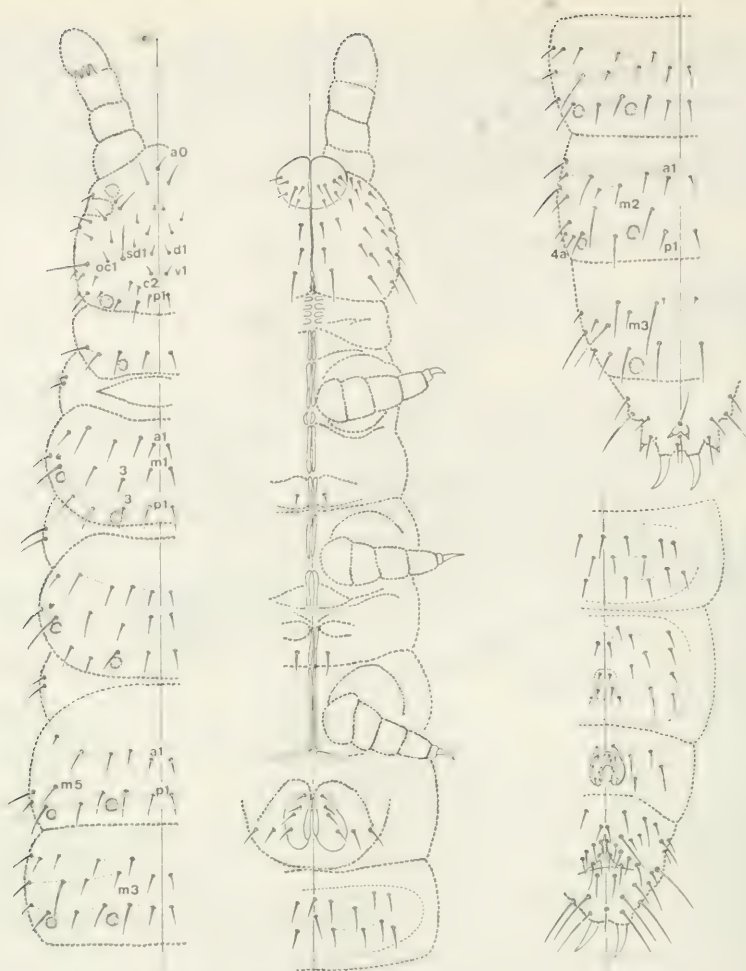 a0
sd1
d1
oc1
v1
c2
p1
a1
m1
3
3
p1
a1
m5
p1
m3
a1
m2
4a
p1
m3